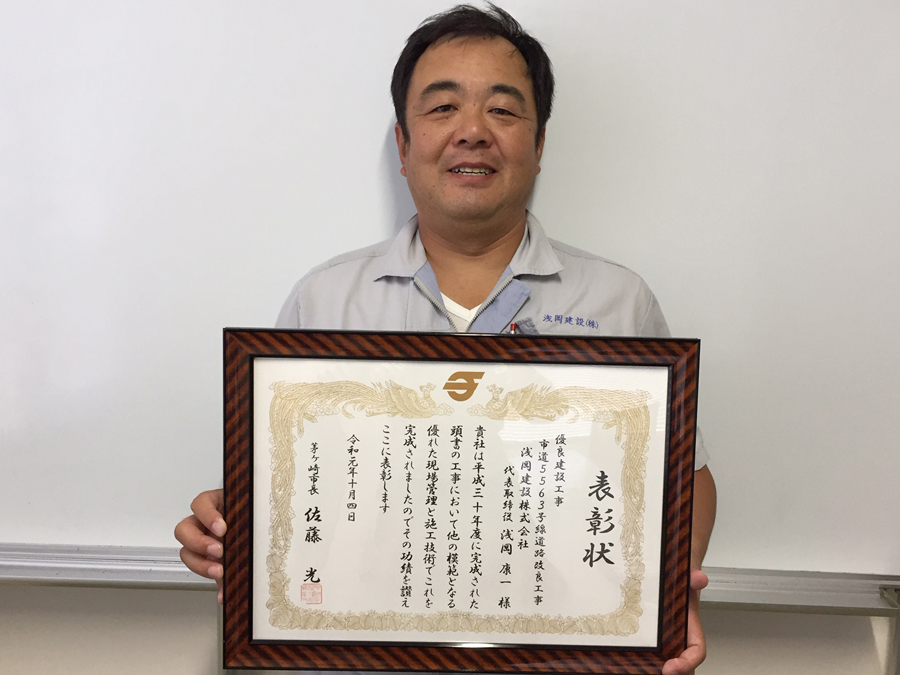 浅岡建設(株)
表彰状
優良建設工事
市道5563号線道路改良工事
浅岡建設株式会社
代表取締役 浅岡 康一 様
貴社は平成三十年度に完成された
頭書の工事において他の模範となる
優れた現場管理と施工技術でこれを
完成されましたのでその功績を讃え
ここに表彰します
令和元年十月四日
茅ヶ崎市長 佐藤 光